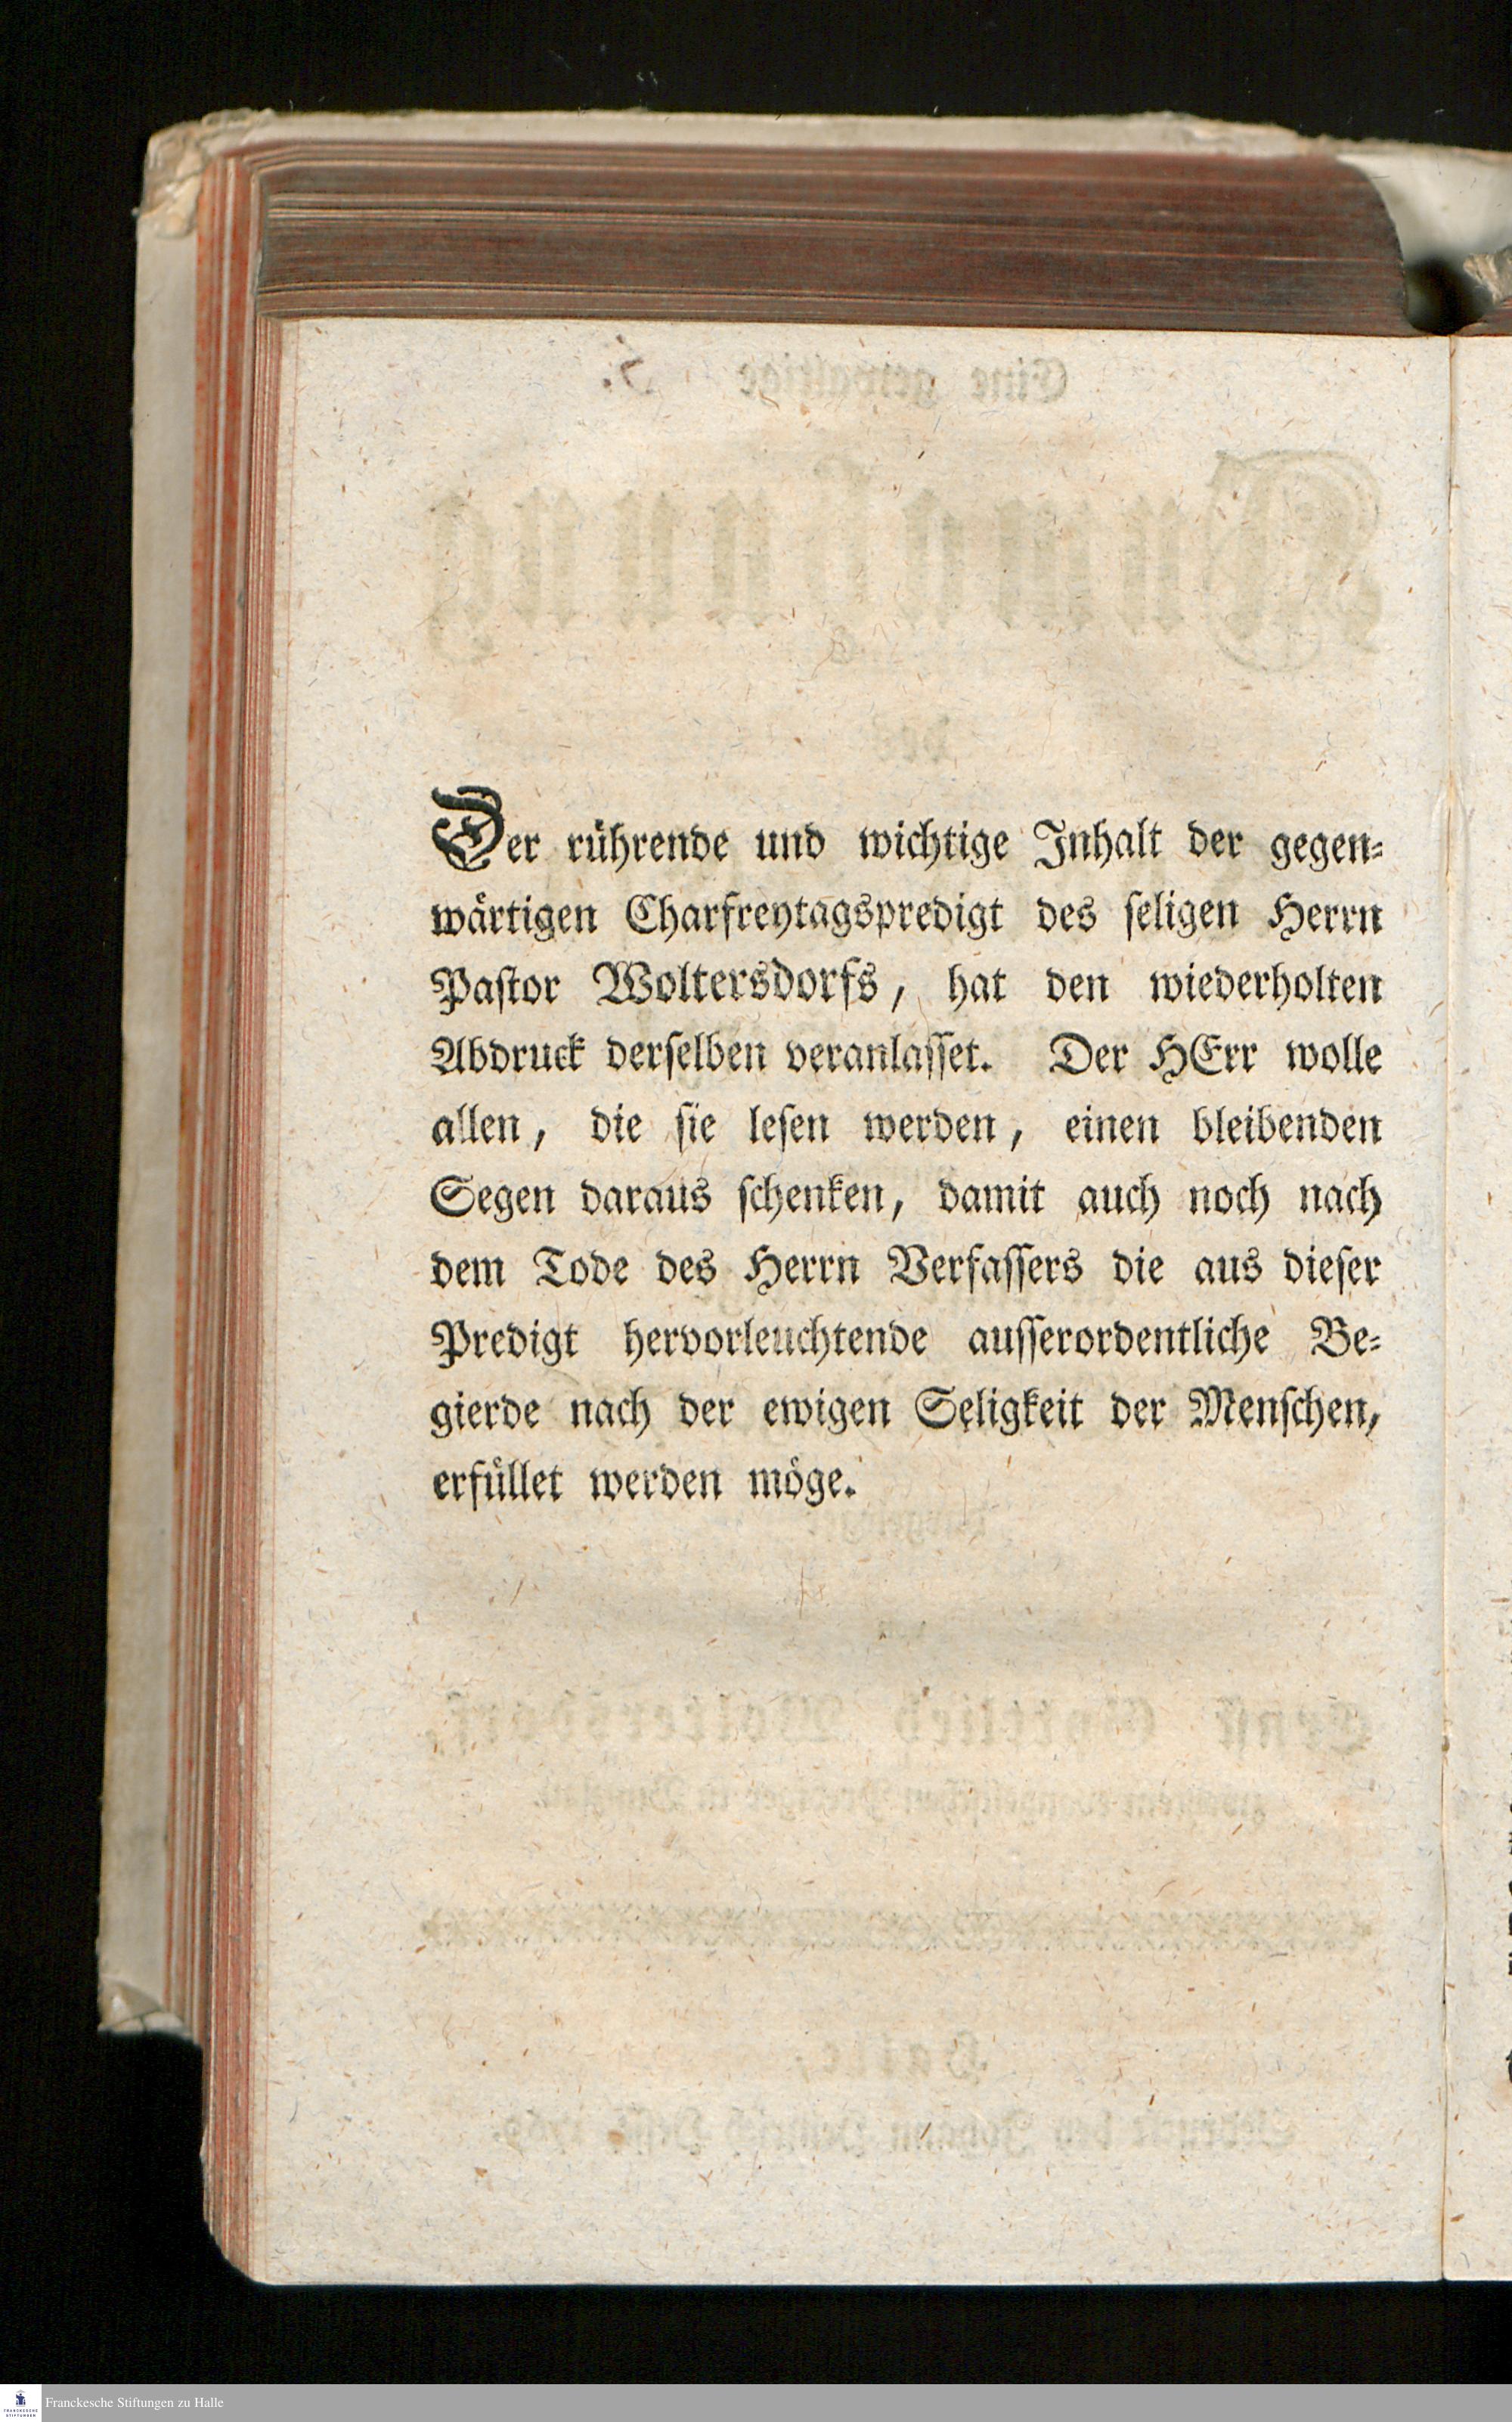 Der rührende und wichtige Inhalt der gegen⸗
wärtigen Charfreytagspredigt des ſeligen Herrn
Paſtor Woltersdorfs, hat den wiederholten
Abdruck derſelben veranlaſſet. Der HErr wolle
allen, die ſie leſen werden, einen bleibenden
Segen daraus ſchenken, damit auch noch nach
dem Tode des Herrn Verfaſſers die aus dieſer
Predigt hervorleuchtende auſſerordentliche Be⸗
gierde nach der ewigen Seligkeit der Menſchen,
erfüllet werden möge.
Franckesche Stiftungen zu Halle
FRANCKESCHE
STIFTUNGEN